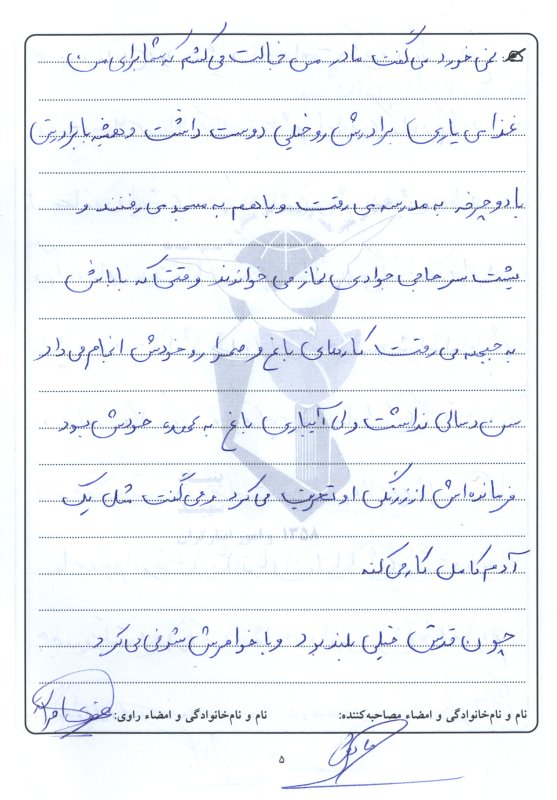 نمی خورد می گفت مادر من خجالت می کشم که شما برای من
غذا می یاری) برادرش رو خیلی دوست داشت و همیشه با برادرش
با دوچرخه به مدرسه می رفت و با هم به مسجد می رفتند و
پشت سر حاجی جوادی نماز می خواندند وقتی که باباش
به جبهه می رفت کارهای باغ و صحرا رو خودش انجام می داد
سن و سالی نداشت ولی آبیاری باغ به عهده خودش بود
فرمانده اش از زرنگی او تعریف می کرد و می گفت مثل یک
آدم کامل کار می کنه
چون قدش خیلی بلند بود و با خواهرش شوخی می کرد
نام و نام‌خانوادگی و امضاء مصاحبه‌کننده: نام و نام‌خانوادگی و امضاء راوی:
۵